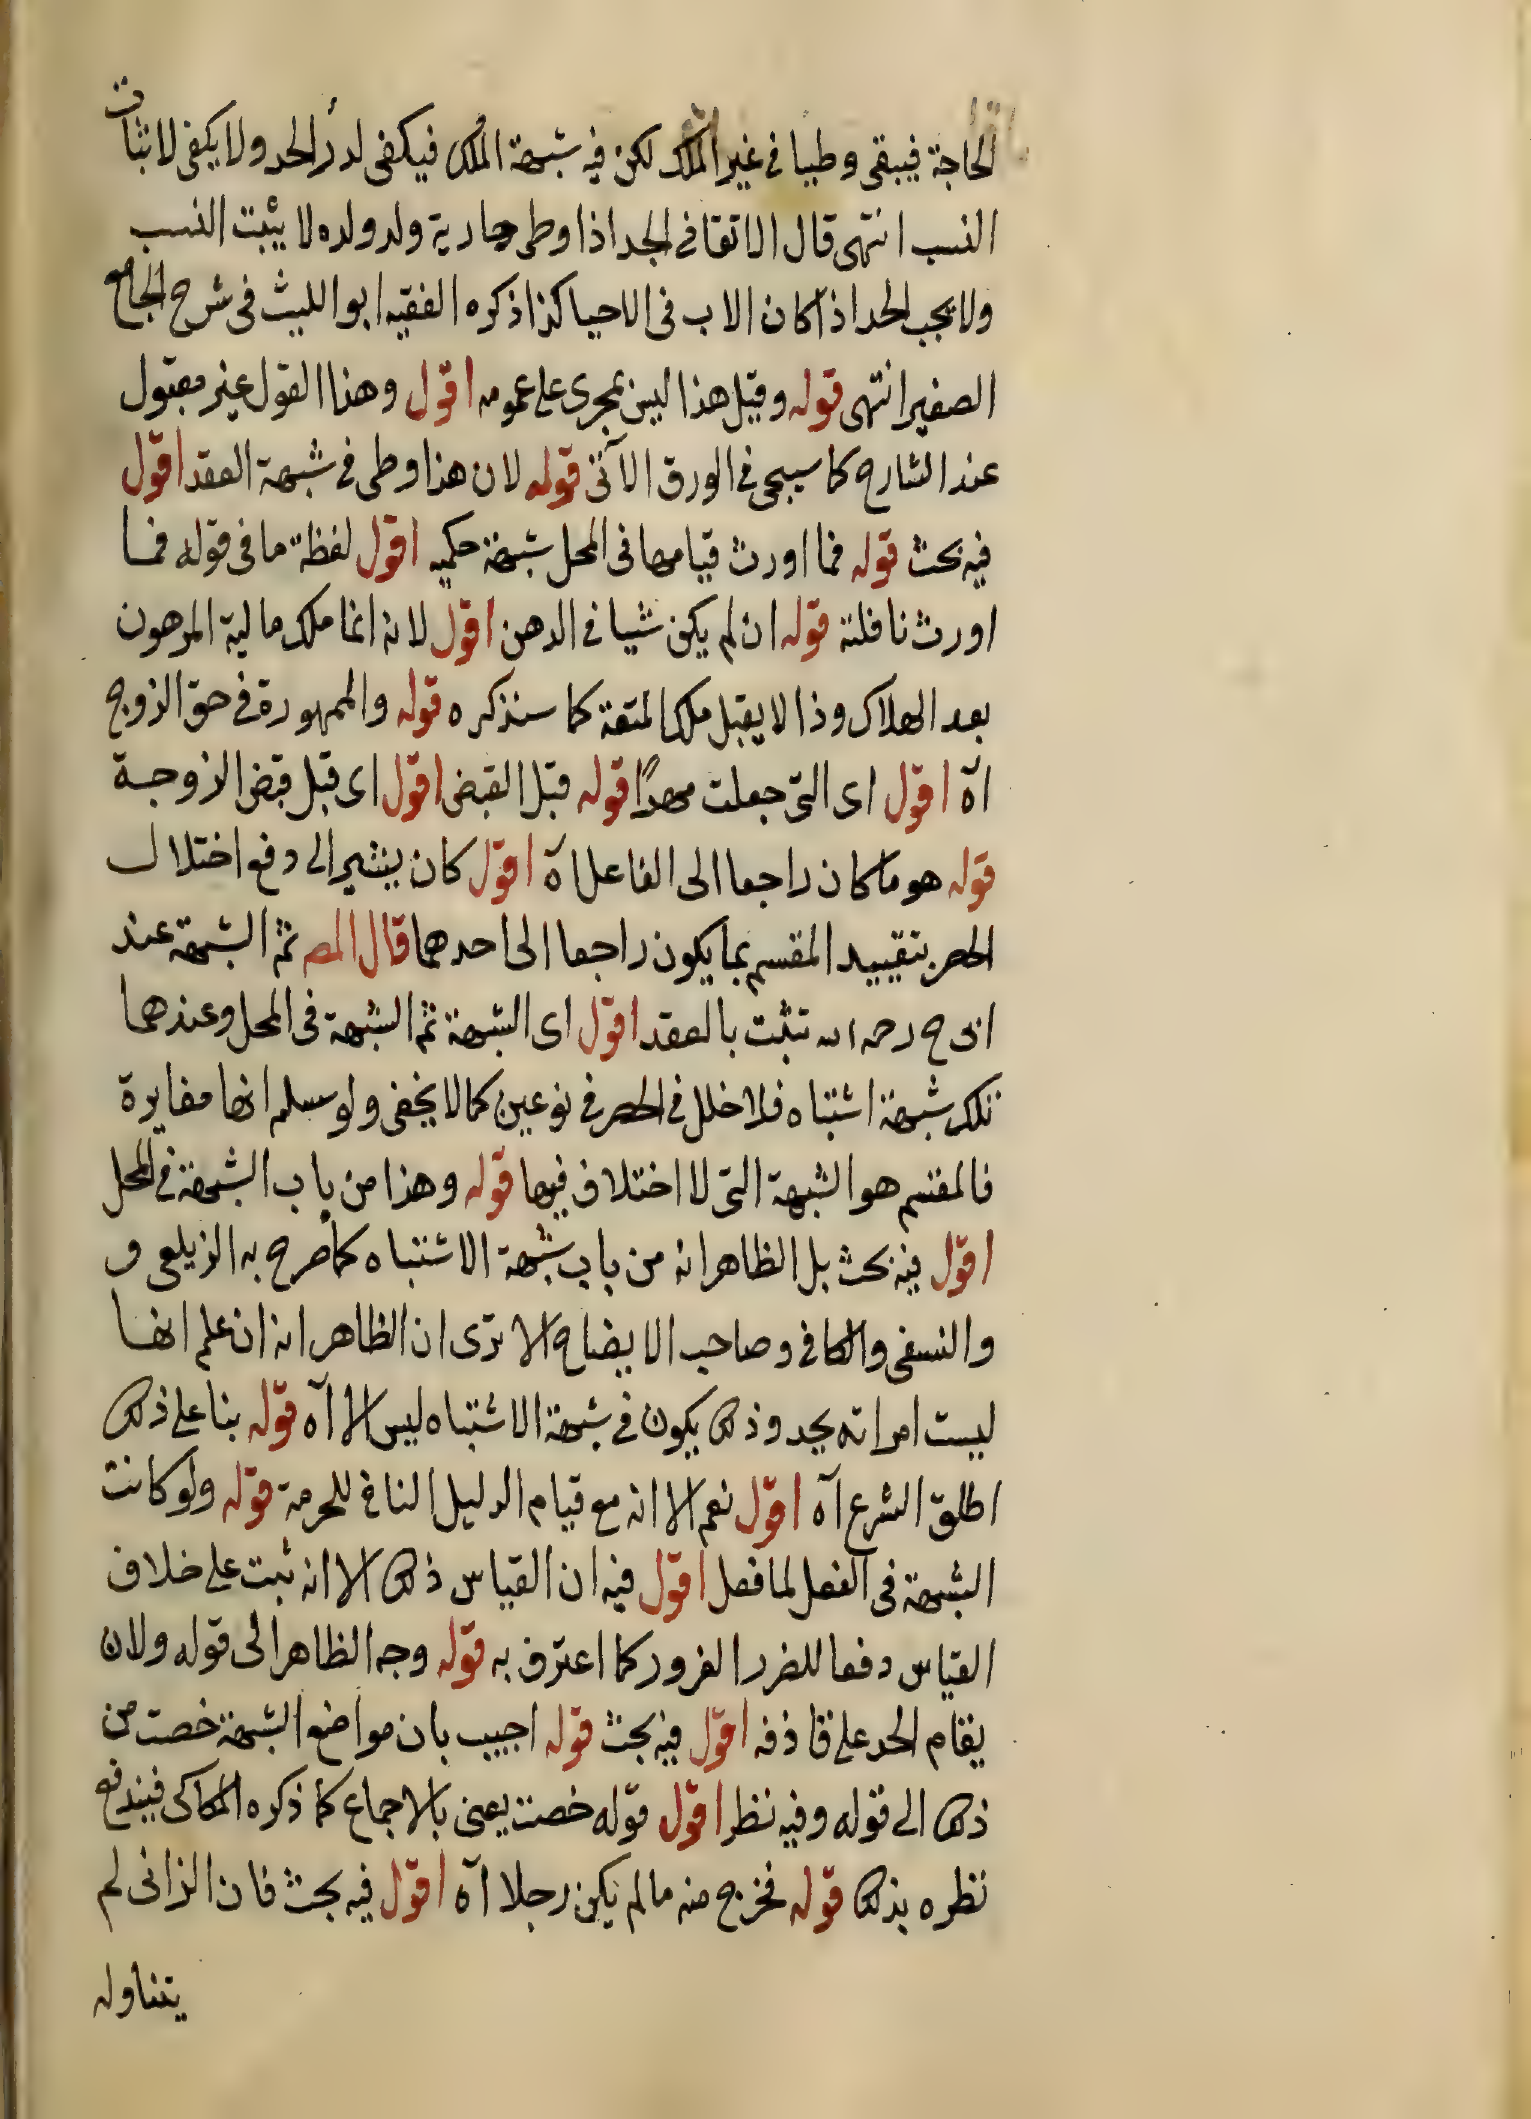 الحاجة فيبقى وطيا فى غير الملك لكن فيه شبهة الملك فيكفى لدرأ الحد ولا يكفى لاثبات
النسب انتهى قال الاتقانى الجد اذا وطى جارية ولد ولده لا يثبت النسب
ولا يجب الحد اذا كان الاب فى الاحيا كذا ذكره الفقيه ابو الليث فى شرح الجامع
الصغير انتهى قوله وقيل هذا ليس بمجرى على عمومه اقول وهذا القول غير مقبول
عند الشارح كما سيجى فى الورق الآتى قوله لان هذا وطى فى شبهة العقد اقول
فيه بحث قوله فما اورث قيامها فى المحل شبهة حكمية اقول لفظة ما فى قوله فما
اورث نافلة قوله ان لم يكن شيا فى الرهن اقول لانه انما ملك مالية المرهون
بعد الهلاك وذا لا يقبل ملك المتعة كما سنذكره قوله والممهورة فى حق الزوج
آه اقول اى التى جعلت مهرًا قوله قبل القبض اقول اى قبل قبض الزوجة
قوله هو ما كان راجعا الى الفاعل آه اقول كان يشير الى دفع اختلال
الحصر بتقييد المقسم بما يكون راجعا الى احدهما قال المص ثم الشبهة عند
ابى ح رحمه الله تثبت بالعقد اقول اى الشبهة ثم الشبهة فى المحل وعندهما
تلك شبهة اشتباه فلا خلل فى الحصر فى نوعين كما لا يخفى ولو سلم انها مغايرة
فالمقسم هو الشبهة التى لا اختلاف فيها قوله وهذا من باب الشبهة فى المحل
اقول فيه بحث بل الظاهر انه من باب شبهة الاشتباه كما صرح به الزيلعى و
والنسفى والكافى وصاحب الايضاح الا ترى ان الظاهر انه ان علم انها
ليست امراته يحد وذلك يكون فى شبهة الاشتباه ليس الا آه قوله بنا على ذلك
اطلق الشرع آه اقول نعم الا انه مع قيام الدليل النافى للحرمة قوله ولو كانت
الشبهة فى الفعل لما فصل اقول فيه ان القياس ذلك الا انه ثبت على خلاف
القياس دفعا للضرر الغرور كما اعترف به قوله وجه الظاهر الى قوله ولان
يقام الحد على قاذفه اقول فيه بحث قوله اجيب بان مواضع الشبهة خصت من
ذلك الى قوله وفيه نظر اقول قوله خصت يعنى بالاجماع كما ذكره الكاكى فيندفع
نظره بذلك قوله فخرج منه ما لم يكن رجلا آه اقول فيه بحث فان الزانى لم
يتناوله